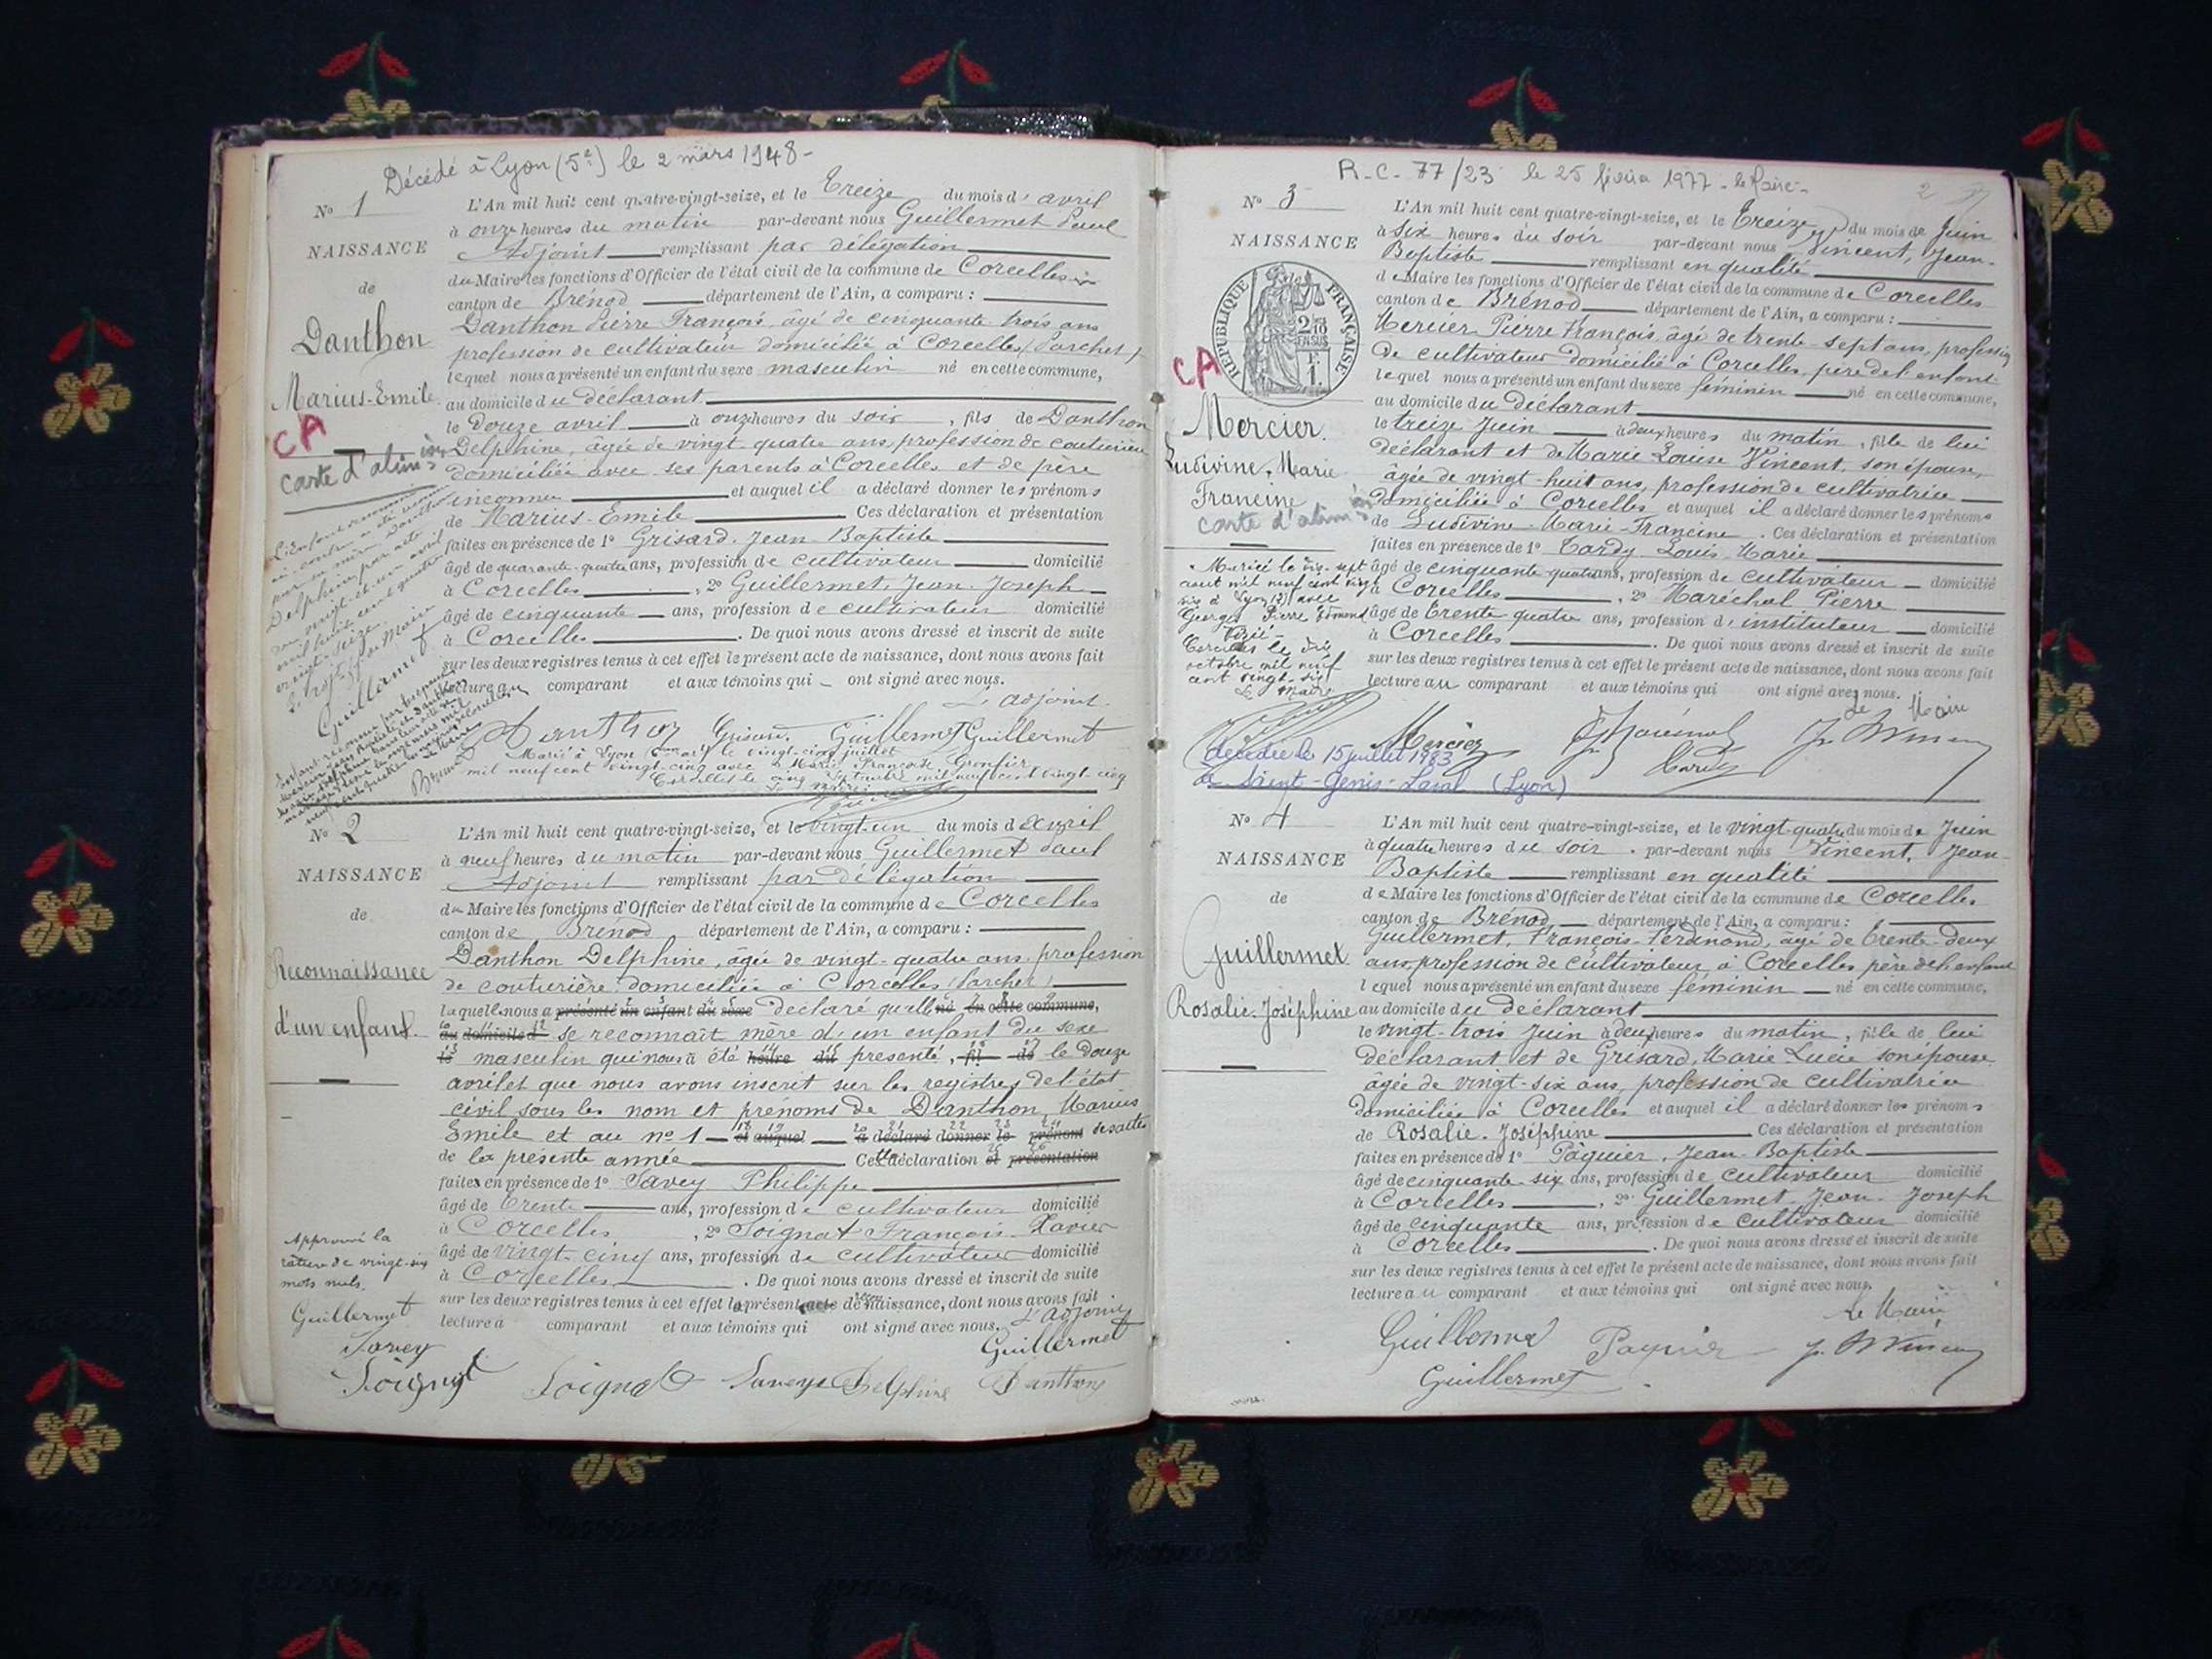 Décédé à Lyon (5e) le 2 mars 1948 -
No 1
NAISSANCE
de
Danthon
Marius-Emile
CA
carte d'alim
L'An mil huit cent quatre-vingt-seize, et le Treize du mois d'avril
à onze heures du matin par-devant nous Guillermet Paul
Adjoint remplissant par délégation
du Maire les fonctions d'Officier de l'état civil de la commune de Corcelles
canton de Brénod département de l'Ain, a comparu :
Danthon Pierre François, âgé de cinquante-trois ans
profession de cultivateur domicilié à Corcelles (Jarchet)
lequel nous a présenté un enfant du sexe masculin né en cette commune,
au domicile du déclarant
le Douze avril à onze heures du soir, fils de Danthon
Delphine, âgée de vingt quatre ans, profession de couturière
domiciliée avec ses parents à Corcelles et de père
inconnu et auquel il a déclaré donner les prénoms
de Marius-Emile Ces déclaration et présentation
faites en présence de 1o Grisard Jean Baptiste
âgé de quarante-quatre ans, profession de cultivateur domicilié
à Corcelles, 2o Guillermet, Jean-Joseph
âgé de cinquante ans, profession de cultivateur domicilié
à Corcelles. De quoi nous avons dressé et inscrit de suite
sur les deux registres tenus à cet effet le présent acte de naissance, dont nous avons fait
lecture au comparant et aux témoins qui ont signé avec nous.
L'adjoint.
Danthon Grisard Guillermet Guillermet
Marié à Lyon le vingt-cinq juillet
mil neuf cent vingt-cinq avec Marie Françoise
Corcelles le cinq septembre mil neuf cent vingt-cinq
No 2
NAISSANCE
de
Reconnaissance
d'un enfant.
L'An mil huit cent quatre-vingt-seize, et le vingt-un du mois d'avril
à neuf heures du matin par-devant nous Guillermet Paul
Adjoint remplissant par délégation
du Maire les fonctions d'Officier de l'état civil de la commune de Corcelles
canton de Brénod département de l'Ain, a comparu :
Danthon Delphine, âgée de vingt-quatre ans profession
de couturière domiciliée à Corcelles (Jarchet)
laquelle nous a présenté un enfant du sexe déclaré qu'elle né en cette commune,
au domicile d se reconnaît mère d'un enfant du sexe
le masculin qui nous a été heure du présenté, fil de le Douze
avril et que nous avons inscrit sur les registres de l'état
civil sous les nom et prénoms de Danthon, Marius
Emile et au no 1 et auquel a déclaré donner le prénom des actes
de la présente année Cette déclaration et présentation
faites en présence de 1o Savey Philippe
âgé de trente ans, profession de cultivateur domicilié
à Corcelles, 2o Soignat François Xavier
âgé de vingt-cinq ans, profession de cultivateur domicilié
à Corcelles. De quoi nous avons dressé et inscrit de suite
sur les deux registres tenus à cet effet le présent acte de naissance, dont nous avons fait
lecture à comparant et aux témoins qui ont signé avec nous.
L'adjoint
Approuvé la
rature de vingt-six
mots nuls.
Guillermet
Savey
Soignat
Soignat Savey Delphine Danthon
Guillermet
R-C- 77/23 le 25 février 1977 - le Maire -
2
No 3
NAISSANCE
REPUBLIQUE FRANÇAISE
2/10 EN SUS
1 F
CA
Mercier.
Ludivine, Marie
Francine
carte d'alim
L'An mil huit cent quatre-vingt-seize, et le Treize du mois de Juin
à six heures du soir par-devant nous Vincent, Jean-
Baptiste remplissant en qualité
de Maire les fonctions d'Officier de l'état civil de la commune de Corcelles
canton de Brénod département de l'Ain, a comparu :
Mercier Pierre François âgé de trente-sept ans, profession
de cultivateur domicilié à Corcelles, père de l'enfant
lequel nous a présenté un enfant du sexe féminin né en cette commune,
au domicile du déclarant
le treize Juin à deux heures du matin, fille de lui
déclarant et de Marie Louise Vincent, son épouse,
âgée de vingt-huit ans, profession de cultivatrice
domiciliée à Corcelles et auquel il a déclaré donner les prénoms
de Ludivine-Marie-Francine. Ces déclaration et présentation
faites en présence de 1o Tardy Louis Marie
âgé de cinquante-quatre ans, profession de cultivateur domicilié
à Corcelles, 2o Maréchal Pierre
âgé de trente-quatre ans, profession d'instituteur domicilié
à Corcelles. De quoi nous avons dressé et inscrit de suite
sur les deux registres tenus à cet effet le présent acte de naissance, dont nous avons fait
lecture au comparant et aux témoins qui ont signé avec nous.
Le Maire
Mariée le dix-sept
août mil neuf cent vingt
six à Lyon avec
Georges Pierre Edmond
Corcelles le dix
octobre mil neuf
cent vingt-six
Le Maire
Mercier Maréchal Tardy J. Vincent
décédée le 15 juillet 1983
à Saint-Genis-Laval (Lyon)
No 4
NAISSANCE
de
Guillermet
Rosalie-Joséphine
L'An mil huit cent quatre-vingt-seize, et le vingt-quatre du mois de Juin
à quatre heures du soir par-devant nous Vincent, Jean-
Baptiste remplissant en qualité
de Maire les fonctions d'Officier de l'état civil de la commune de Corcelles
canton de Brénod département de l'Ain, a comparu :
Guillermet, François-Ferdinand, âgé de trente-deux
ans, profession de cultivateur à Corcelles père de l'enfant
lequel nous a présenté un enfant du sexe féminin né en cette commune,
au domicile du déclarant
le vingt-trois Juin à deux heures du matin, fille de lui
déclarant et de Grisard, Marie Lucie son épouse
âgée de vingt-six ans, profession de cultivatrice
domiciliée à Corcelles et auquel il a déclaré donner les prénoms
de Rosalie-Joséphine Ces déclaration et présentation
faites en présence de 1o Pâquier, Jean-Baptiste
âgé de cinquante-six ans, profession de cultivateur domicilié
à Corcelles, 2o Guillermet Jean-Joseph
âgé de cinquante ans, profession de cultivateur domicilié
à Corcelles. De quoi nous avons dressé et inscrit de suite
sur les deux registres tenus à cet effet le présent acte de naissance, dont nous avons fait
lecture au comparant et aux témoins qui ont signé avec nous.
Le Maire
Guillermet Paquier J. Vincent
Guillermet